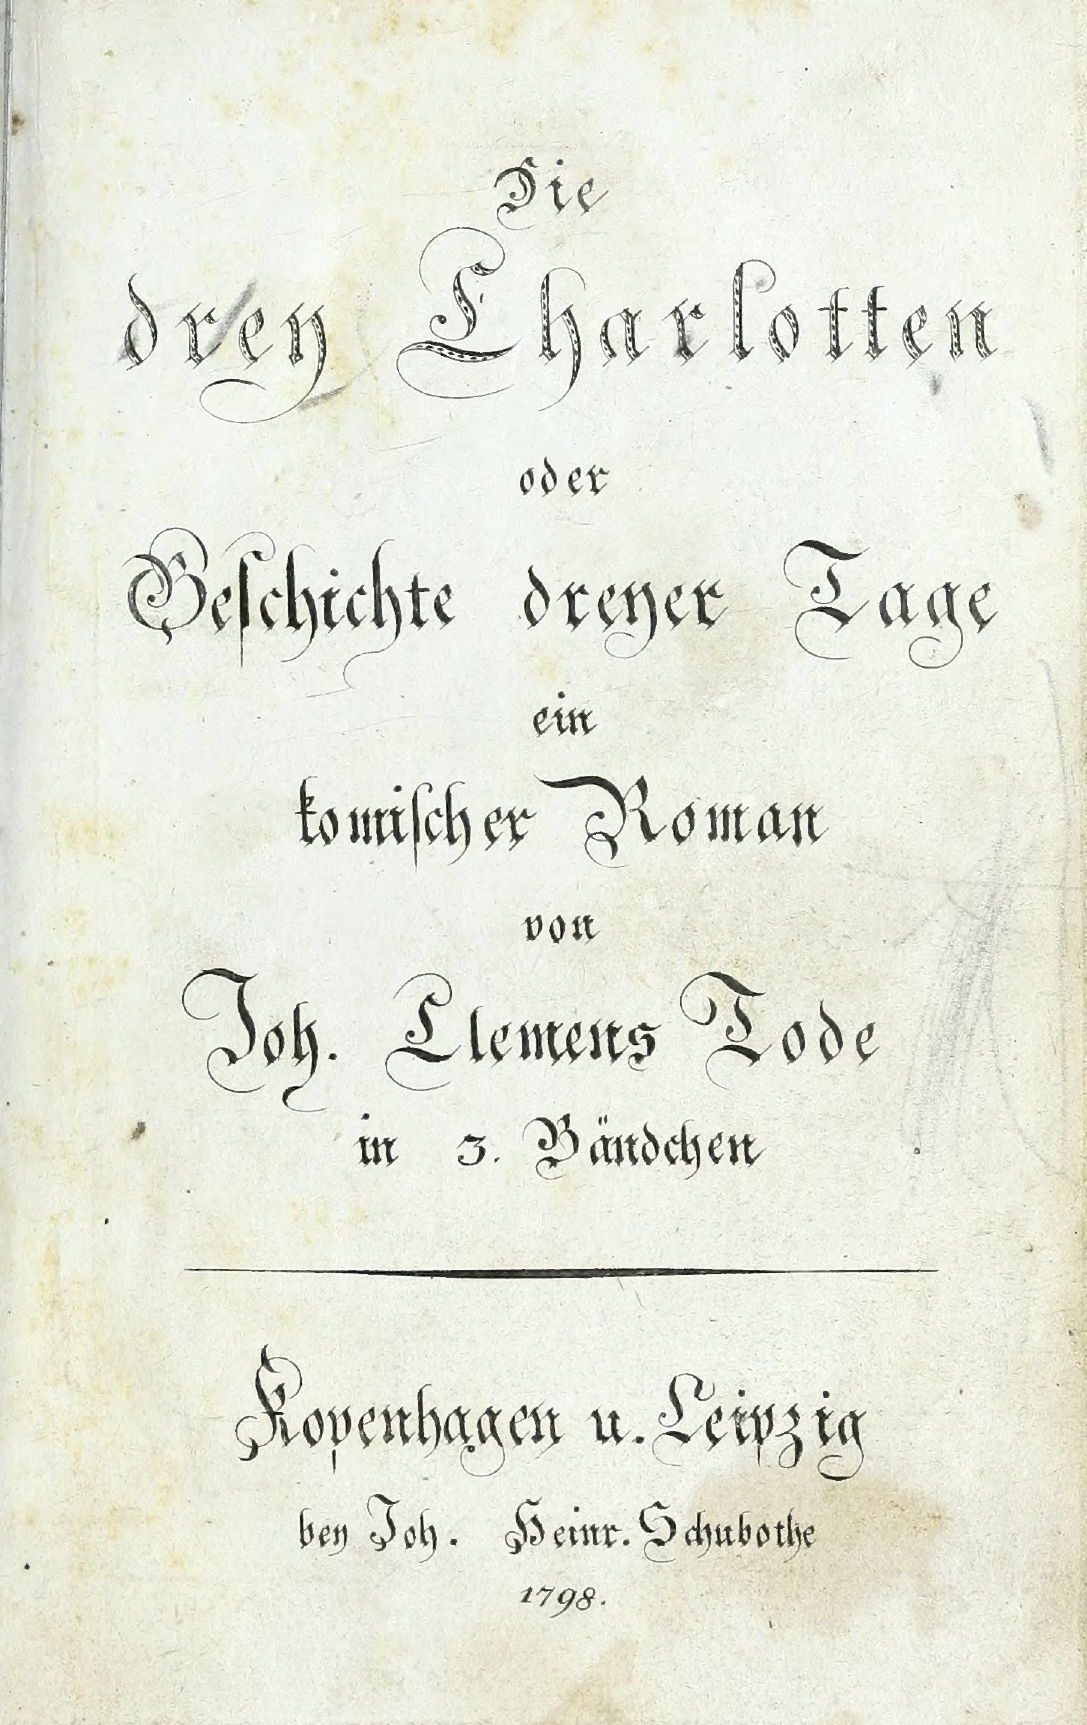 Die
drey Charlotten
oder
Geschichte dreyer Tage
ein
komischer Roman
von
Joh. Clemens Tode
in 3. Bändchen
Kopenhagen u. Leipzig
bey Joh. Heinr. Schubothe
1798.